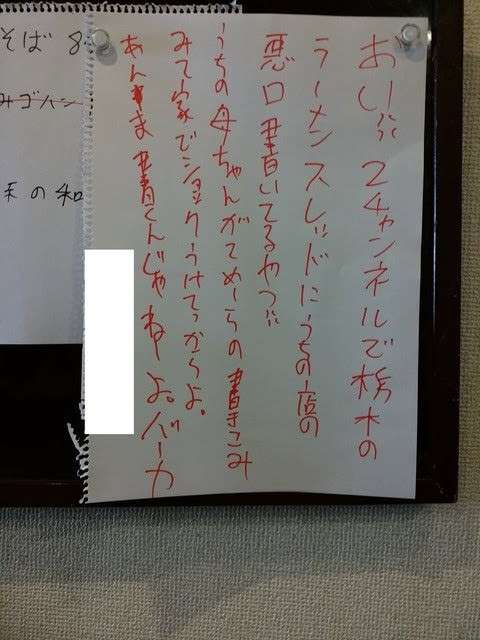 おい!! 2チャンネルで栃木の
ラーメン スレッドにうちの店の
悪口書いてるやつ!!
うちの母ちゃんがてめーらの書きこみ
みて家でショックうけてっからよ。
あんま書くんじゃねーよ。バーカ
そば 8
みゴハン
の和